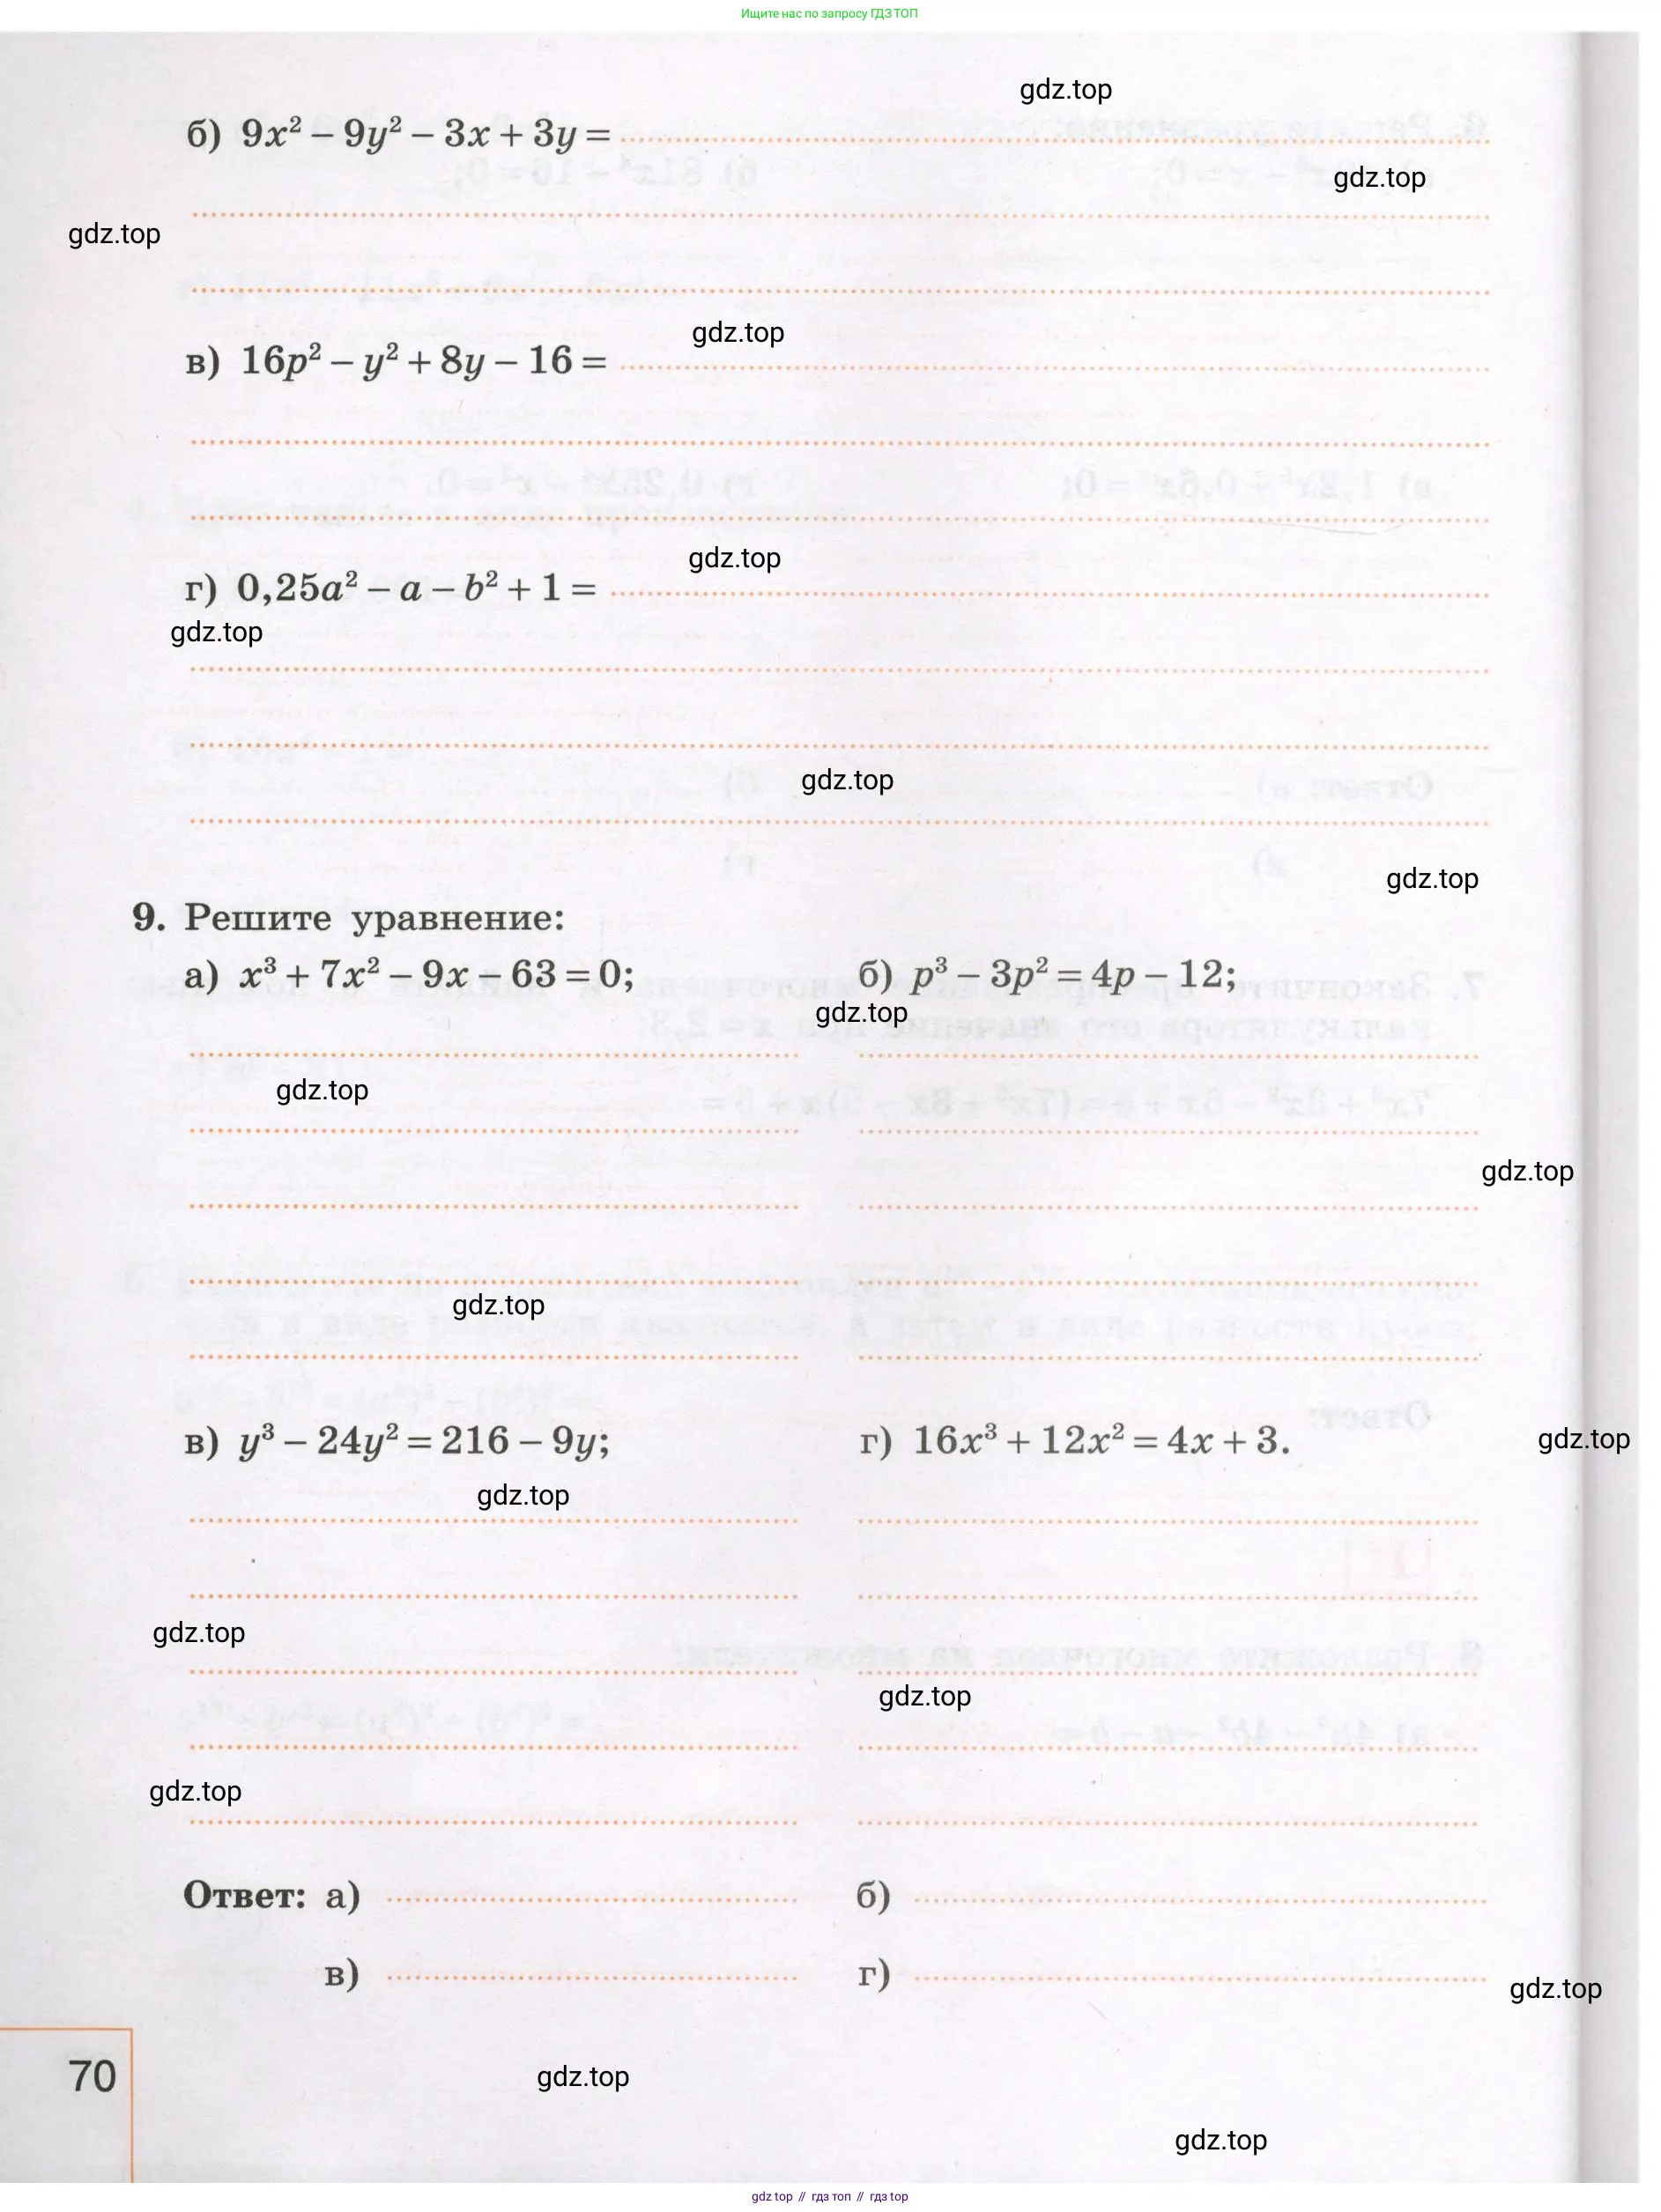 Ищите нас по запросу ГДЗ ТОП
gdz.top
б) 9x² – 9y² – 3x + 3y =
gdz.top
gdz.top
gdz.top
в) 16p² – y² + 8y – 16 =
gdz.top
г) 0,25a² – a – b² + 1 =
gdz.top
gdz.top
gdz.top
9. Решите уравнение:
а) x³ + 7x² – 9x – 63 = 0;
б) p³ – 3p² = 4p – 12;
gdz.top
gdz.top
gdz.top
gdz.top
в) y³ – 24y² = 216 – 9y;
г) 16x³ + 12x² = 4x + 3.
gdz.top
gdz.top
gdz.top
gdz.top
gdz.top
Ответ: а)
б)
в)
г)
gdz.top
70
gdz.top
gdz.top
gdz top // гдз топ // гдз top